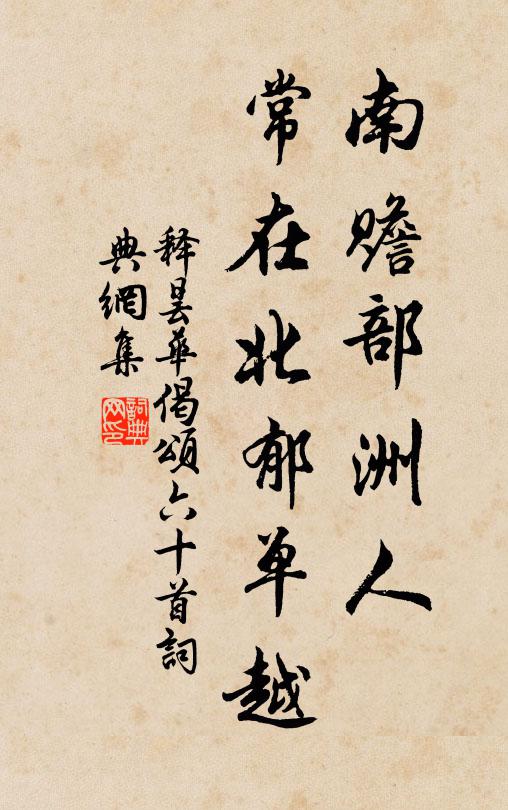 南赡部洲人
常在北郁单越
释昙华偈颂六十首词
典網集
詞典
网印